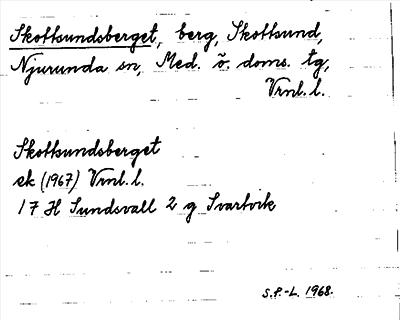 Skottsundsberget, berg, Skottsund,
Njurunda sn, Med. ö. doms. tg,
Vrnl. l.
Skottsundsberget
ek (1967) Vrnl. l.
17 H Sundsvall 2 g Svartvik
S.P.-L. 1968.